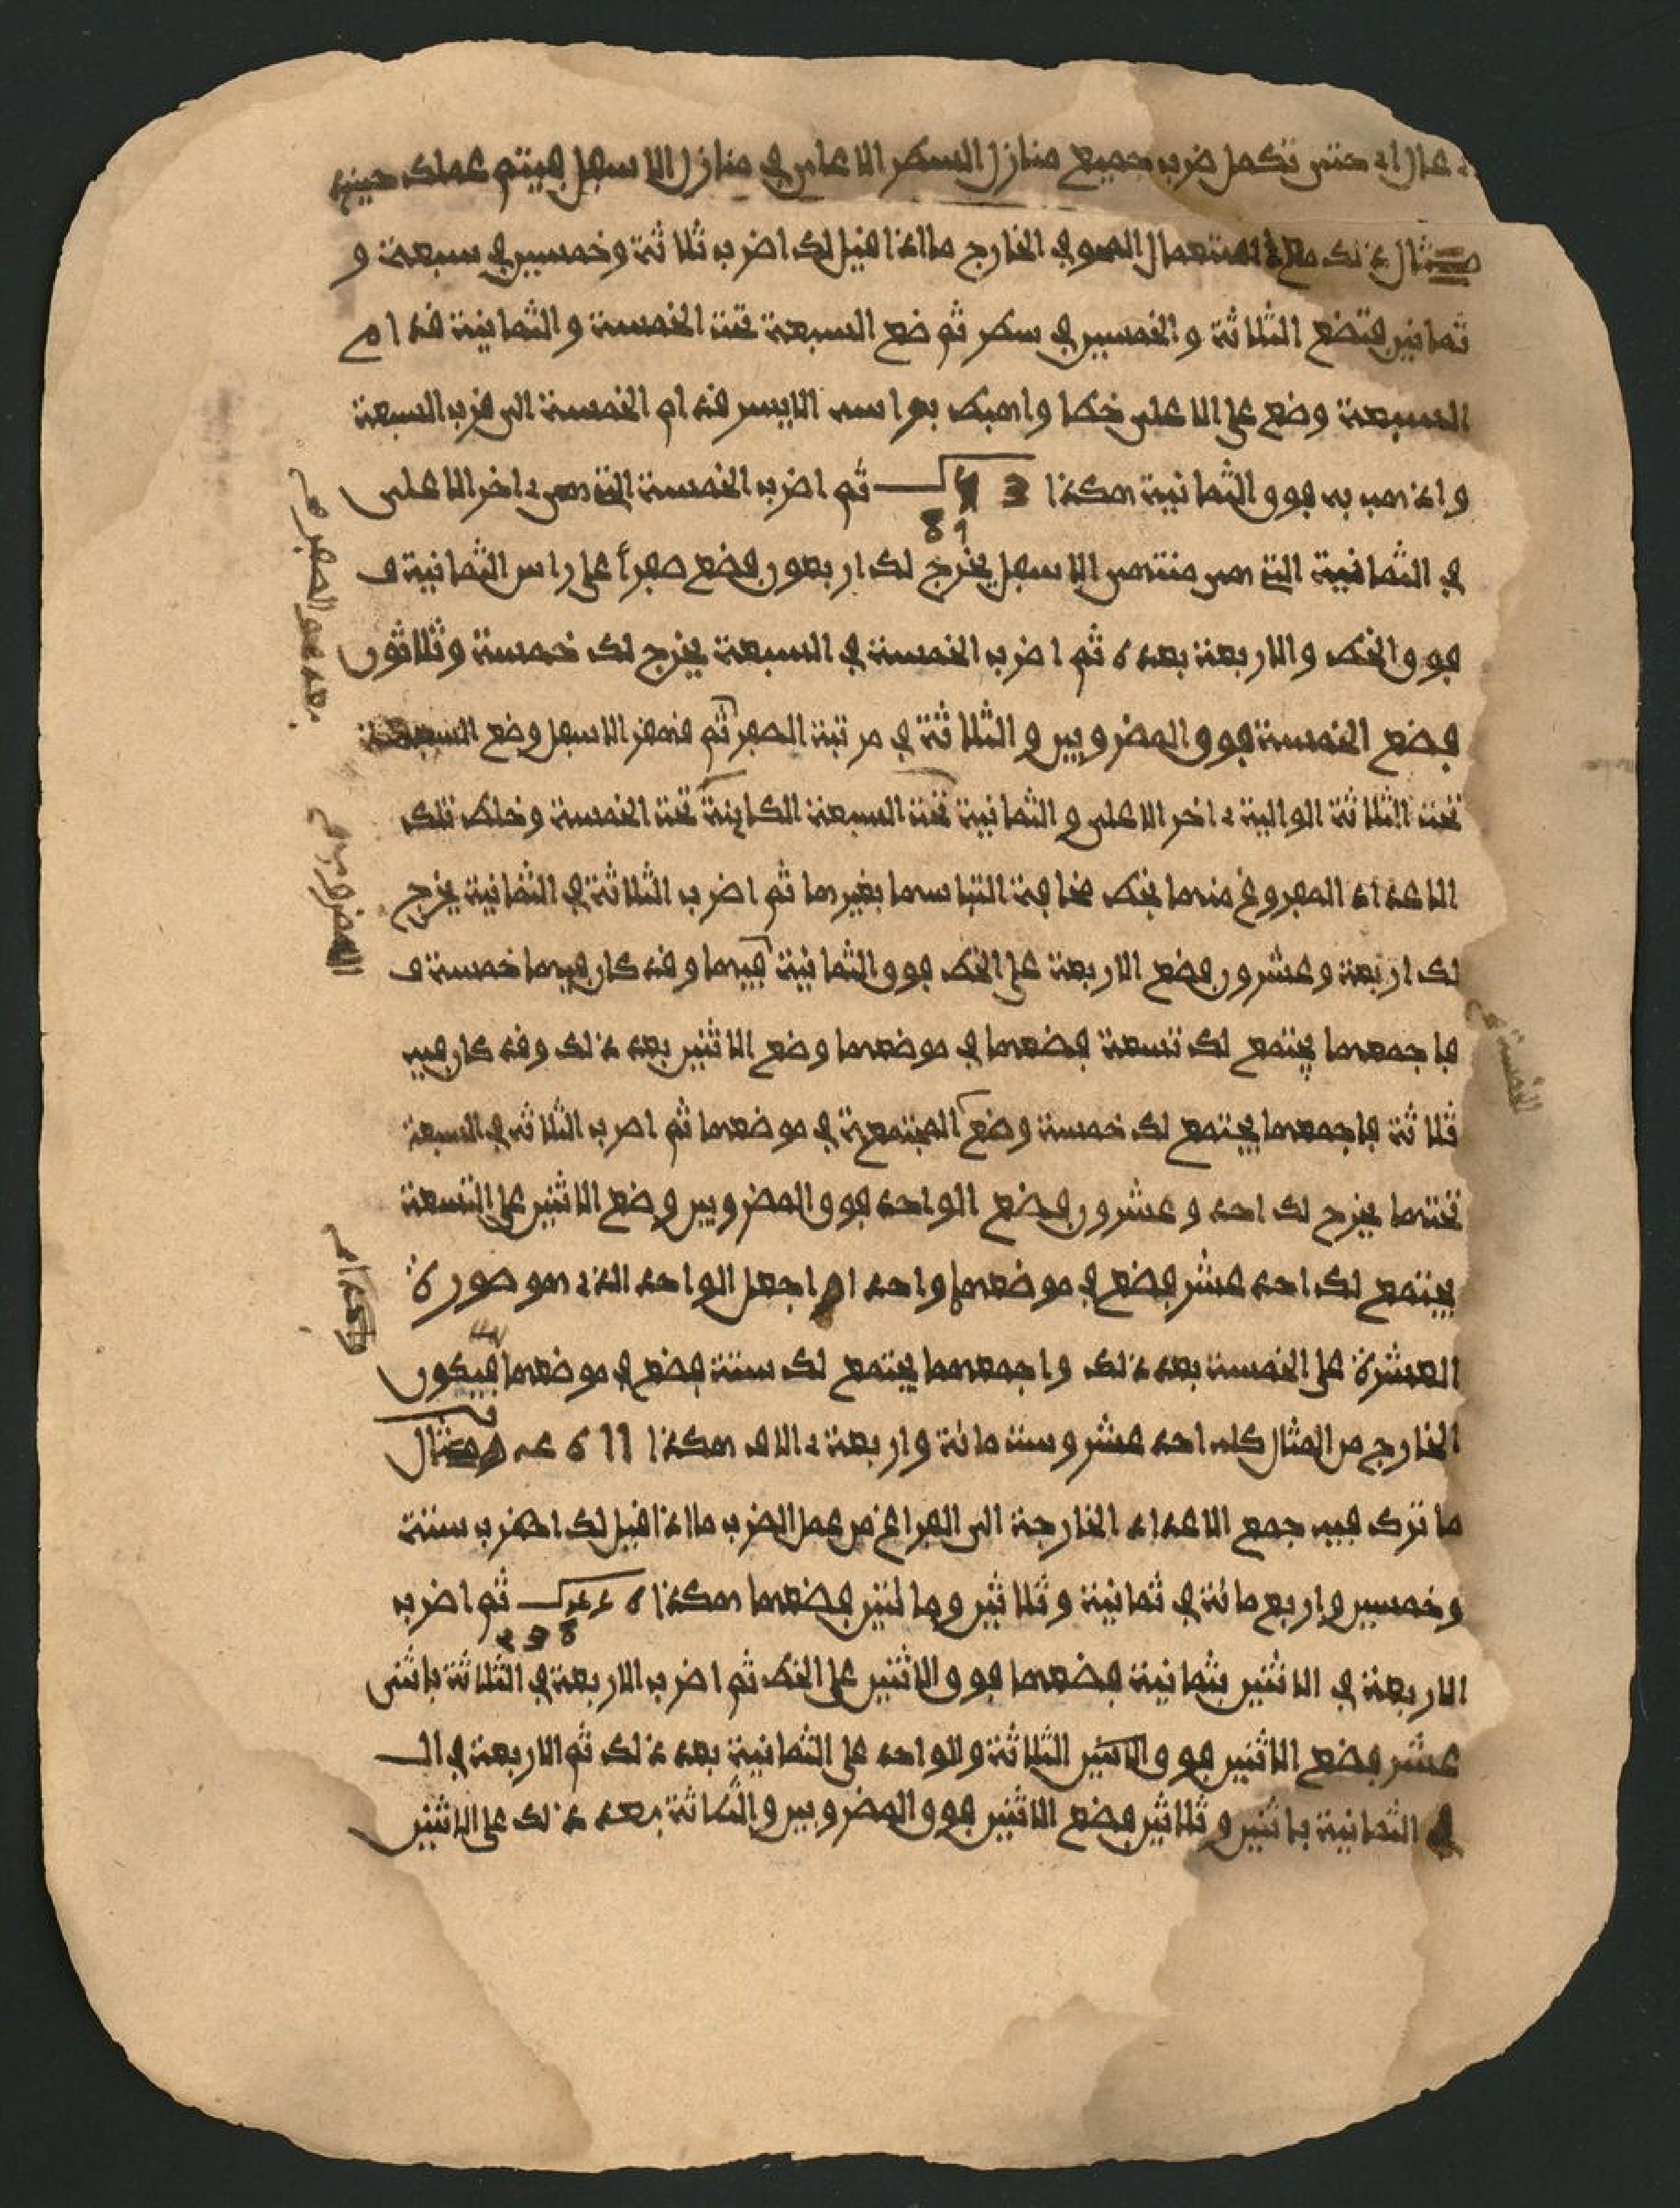 حتى تكمل ضرب جميع منازل السطر الاعلى في منازل الاسفل فيتم عملك حينئذ
مثال ذلك مع استعمال المحو في الخارج ما اذا قيل لك اضرب ثلاثة وخمسين في سبعة و
ثمانين فتضع الثلاثة والخمسين في سطر ثم ضع السبعة تحت الخمسة والثمانية قدام
السبعة وضع على الاعلى خطا واهبط براسه الايسر قدام الخمسة الى قرب السبعة
واذهب به فوق الثمانية هكذا ثم اضرب الخمسة التي هي ءاخر الاعلى
في الثمانية التي هي منتهى الاسفل يخرج لك اربعون فضع صفرا على راس الثمانية
فوق الخط والاربعة بعده ثم اضرب الخمسة في السبعة يخرج لك خمسة وثلاثون
فضع الخمسة فوق المضروبين والثلاثة في مرتبة الصفر ثم قهقر الاسفل وضع السبعة
تحت الثلاثة الوالية ءاخر الاعلى والثمانية تحت السبعة الكاينة تحت الخمسة وخلط تلك
الاعداد المفروغ منها بخط مخافة التباسها بغيرها ثم اضرب الثلاثة في الثمانية يخرج
لك اربعة وعشرون فضع الاربعة على الخط فوق الثمانية فيها وقد كان فيها خمسة
فاجمعهما يجتمع لك تسعة فضعها في موضعها وضع الاثنين بعد ذلك وقد كان فيه
ثلاثة فاجمعهما يجتمع لك خمسة وضع المجتمعة في موضعها ثم اضرب الثلاثة في السبعة
تحتها يخرج لك احد وعشرون فضع الواحد فوق المضروبين وضع الاثنين على التسعة
يجتمع لك احد عشر فضع في موضعها واحدا واجعل الواحد الذي هو صورة
العشرة على الخمسة بعد ذلك واجمعهما يجتمع لك ستة فضع في موضعها فيكون
الخارج من المثال كله احد عشر وست مائة واربعة ءالاف هكذا ومثال
ما ترك فيه جمع الاعداد الخارجة الى الفراغ من عمل الضرب ما اذا قيل لك اضرب ستة
وخمسين واربع مائة في ثمانية وثلاثين ومائتين فضعهما هكذا ثم اضرب
الاربعة في الاثنين بثمانية فضعها فوق الاثنين على الخط ثم اضرب الاربعة في الثلاثة باثنى
عشر فضع الاثنين فوق الثلاثة والواحد على الثمانية بعد ذلك ثم الاربعة في
في الثمانية باثنين وثلاثين فضع الاثنين فوق المضروبين والثلاثة بعد ذلك على الاثنين